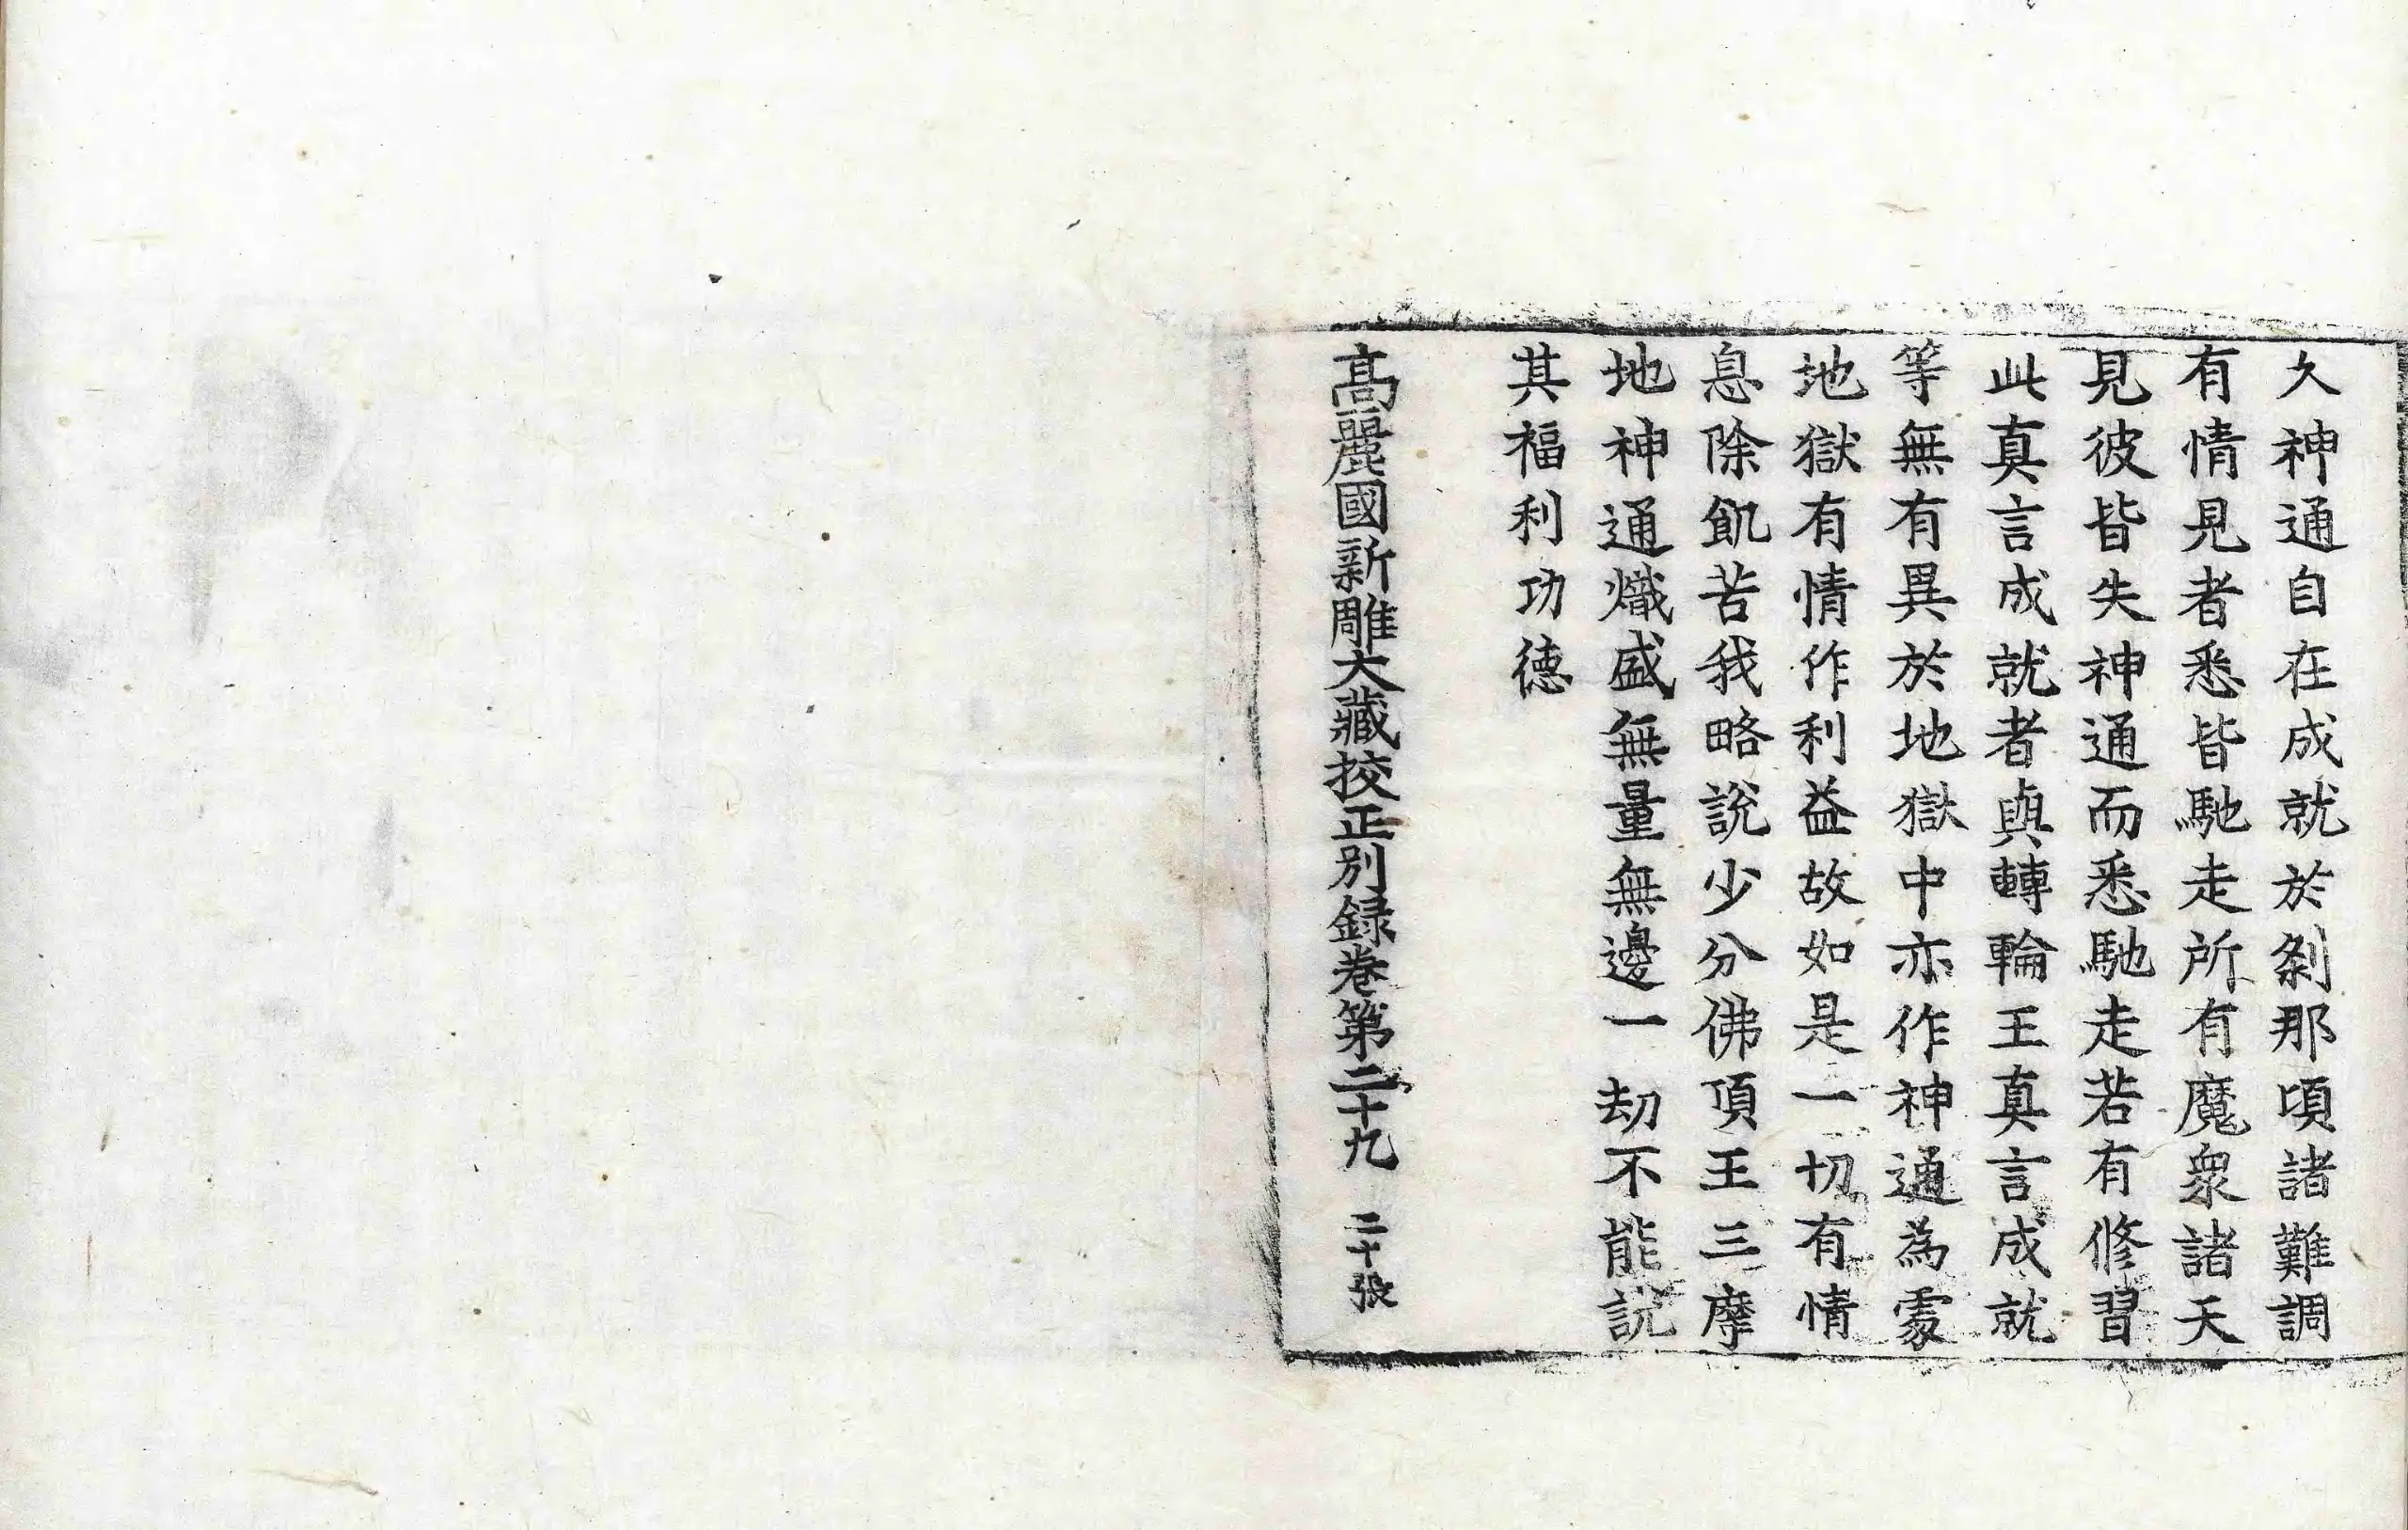 久神通自在成就於刹那頃諸難調
有情見者悉皆馳走所有魔衆諸天
見彼皆失神通而悉馳走若有修習
此真言成就者與轉輪王真言成就
等無有異於地獄中亦作神通為䖏
地獄有情作利益故如是一切有情
息除飢苦我略說少分佛頂王三摩
地神通熾盛無量無邊一劫不能說
其福利功德
高麗國新雕大藏挍正別録卷第二十九 二十張